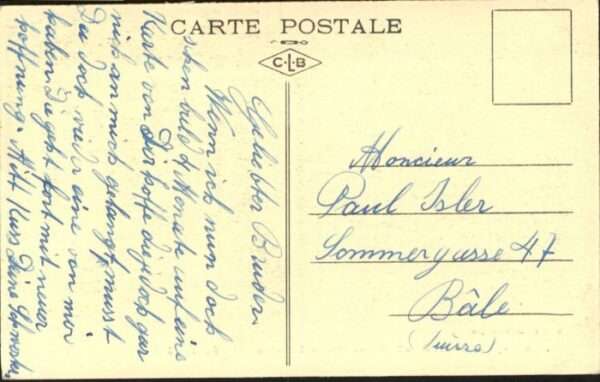 CARTE POSTALE
C·L·B
Geliebter Bruder.
Wenn ich nun doch
schon bald 4 Monate
Karte von Dir hoffe die doch gar
nich an mich gelangt, musst
Du doch wieder eine von mir
haben. Die geht fort mit neuer
Hoffnung. Mitt Kuss Deine
Moncieur
Paul Isler
Sommergasse 47
Bâle
(Suisse)